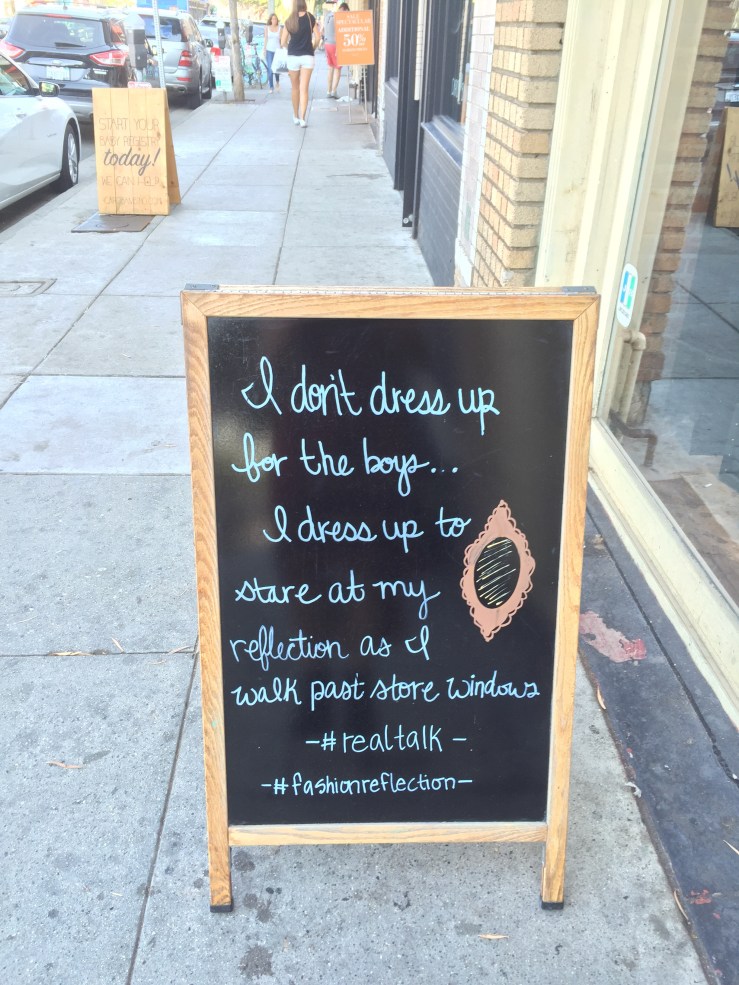 50%
START YOUR
BABY REGISTRY
today!
WE CAN HELP
I don't dress up
for the boys...
I dress up to
stare at my
reflection as I
walk past store windows
-#realtalk-
-#fashionreflection-